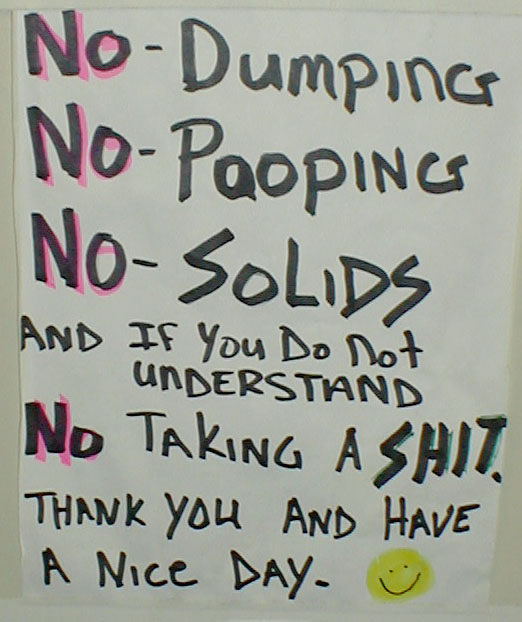 No - DumpinG
No - PoopinG
No - SoLiDS
AND IF You Do not
unDERSTAND
No TAKING A SHIT.
THANK YOU AND HAVE
A Nice DAY-